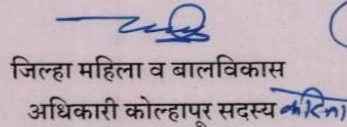 जिल्हा महिला व बालविकास
अधिकारी कोल्हापूर सदस्य करिता